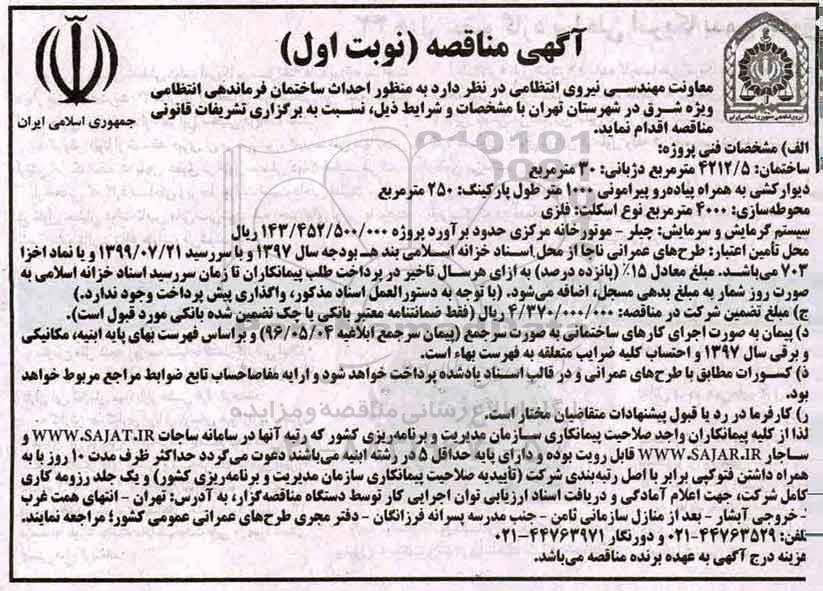 آگهی مناقصه (نوبت اول)
جمهوری اسلامی ایران
معاونت مهندسی نیروی انتظامی در نظر دارد به منظور احداث ساختمان فرماندهی انتظامی
ویژه شرق در شهرستان تهران با مشخصات و شرایط ذیل، نسبت به برگزاری تشریفات قانونی
مناقصه اقدام نماید.
الف) مشخصات فنی پروژه:
ساختمان: ۴۲۱۲/۵ مترمربع دژبانی: ۳۰ مترمربع
دیوارکشی به همراه پیاده‌رو پیرامونی ۱۰۰۰ متر طول پارکینگ: ۲۵۰ مترمربع
محوطه‌سازی: ۴۰۰۰ مترمربع نوع اسکلت: فلزی
سیستم گرمایش و سرمایش: چیلر - موتورخانه مرکزی حدود برآورد پروژه ۱۴۳/۴۵۲/۵۰۰/۰۰۰ ریال
محل تأمین اعتبار: طرح‌های عمرانی ناجا از محل اسناد خزانه اسلامی بند هـ بودجه سال ۱۳۹۷ و با سررسید ۱۳۹۹/۰۷/۲۱ و یا نماد اخزا
۷۰۳ می‌باشد. مبلغ معادل ۱۵٪ (پانزده درصد) به ازای هرسال تاخیر در پرداخت طلب پیمانکاران تا زمان سررسید اسناد خزانه اسلامی به
صورت روز شمار به مبلغ بدهی مسجل، اضافه می‌شود. (با توجه به دستورالعمل اسناد مذکور، واگذاری پیش پرداخت وجود ندارد.)
ج) مبلغ تضمین شرکت در مناقصه: ۴/۳۷۰/۰۰۰/۰۰۰ ریال (فقط ضمانتنامه معتبر بانکی یا چک تضمین شده بانکی مورد قبول است).
د) پیمان به صورت اجرای کارهای ساختمانی به صورت سرجمع (پیمان سرجمع ابلاغیه ۹۶/۰۵/۰۴) و براساس فهرست بهای پایه ابنیه، مکانیکی
و برقی سال ۱۳۹۷ و احتساب کلیه ضرایب متعلقه به فهرست بهاء است.
ذ) کسورات مطابق با طرح‌های عمرانی و در قالب اسناد یادشده پرداخت خواهد شود و ارایه مفاصاحساب تابع ضوابط مراجع مربوط خواهد
بود.
ر) کارفرما در رد یا قبول پیشنهادات متقاضیان مختار است.
لذا از کلیه پیمانکاران واجد صلاحیت پیمانکاری سازمان مدیریت و برنامه‌ریزی کشور که رتبه آنها در سامانه ساجات WWW.SAJAT.IR و
ساجار WWW.SAJAR.IR قابل رویت بوده و دارای پایه حداقل ۵ در رشته ابنیه می‌باشند دعوت می‌گردد حداکثر ظرف مدت ۱۰ روز با به
همراه داشتن فتوکپی برابر با اصل رتبه‌بندی شرکت (تأییدیه صلاحیت پیمانکاری سازمان مدیریت و برنامه‌ریزی کشور) و یک جلد رزومه کاری
کامل شرکت، جهت اعلام آمادگی و دریافت اسناد ارزیابی توان اجرایی کار توسط دستگاه مناقصه‌گزار، به آدرس: تهران - انتهای همت غرب
- خروجی آبشار - بعد از منازل سازمانی ثامن - جنب مدرسه پسرانه فرزانگان - دفتر مجری طرح‌های عمرانی عمومی کشور؛ مراجعه نمایند.
تلفن: ۴۴۷۶۳۵۲۹-۰۲۱ و دورنگار ۴۴۷۶۳۹۷۱-۰۲۱
هزینه درج آگهی به عهده برنده مناقصه می‌باشد.